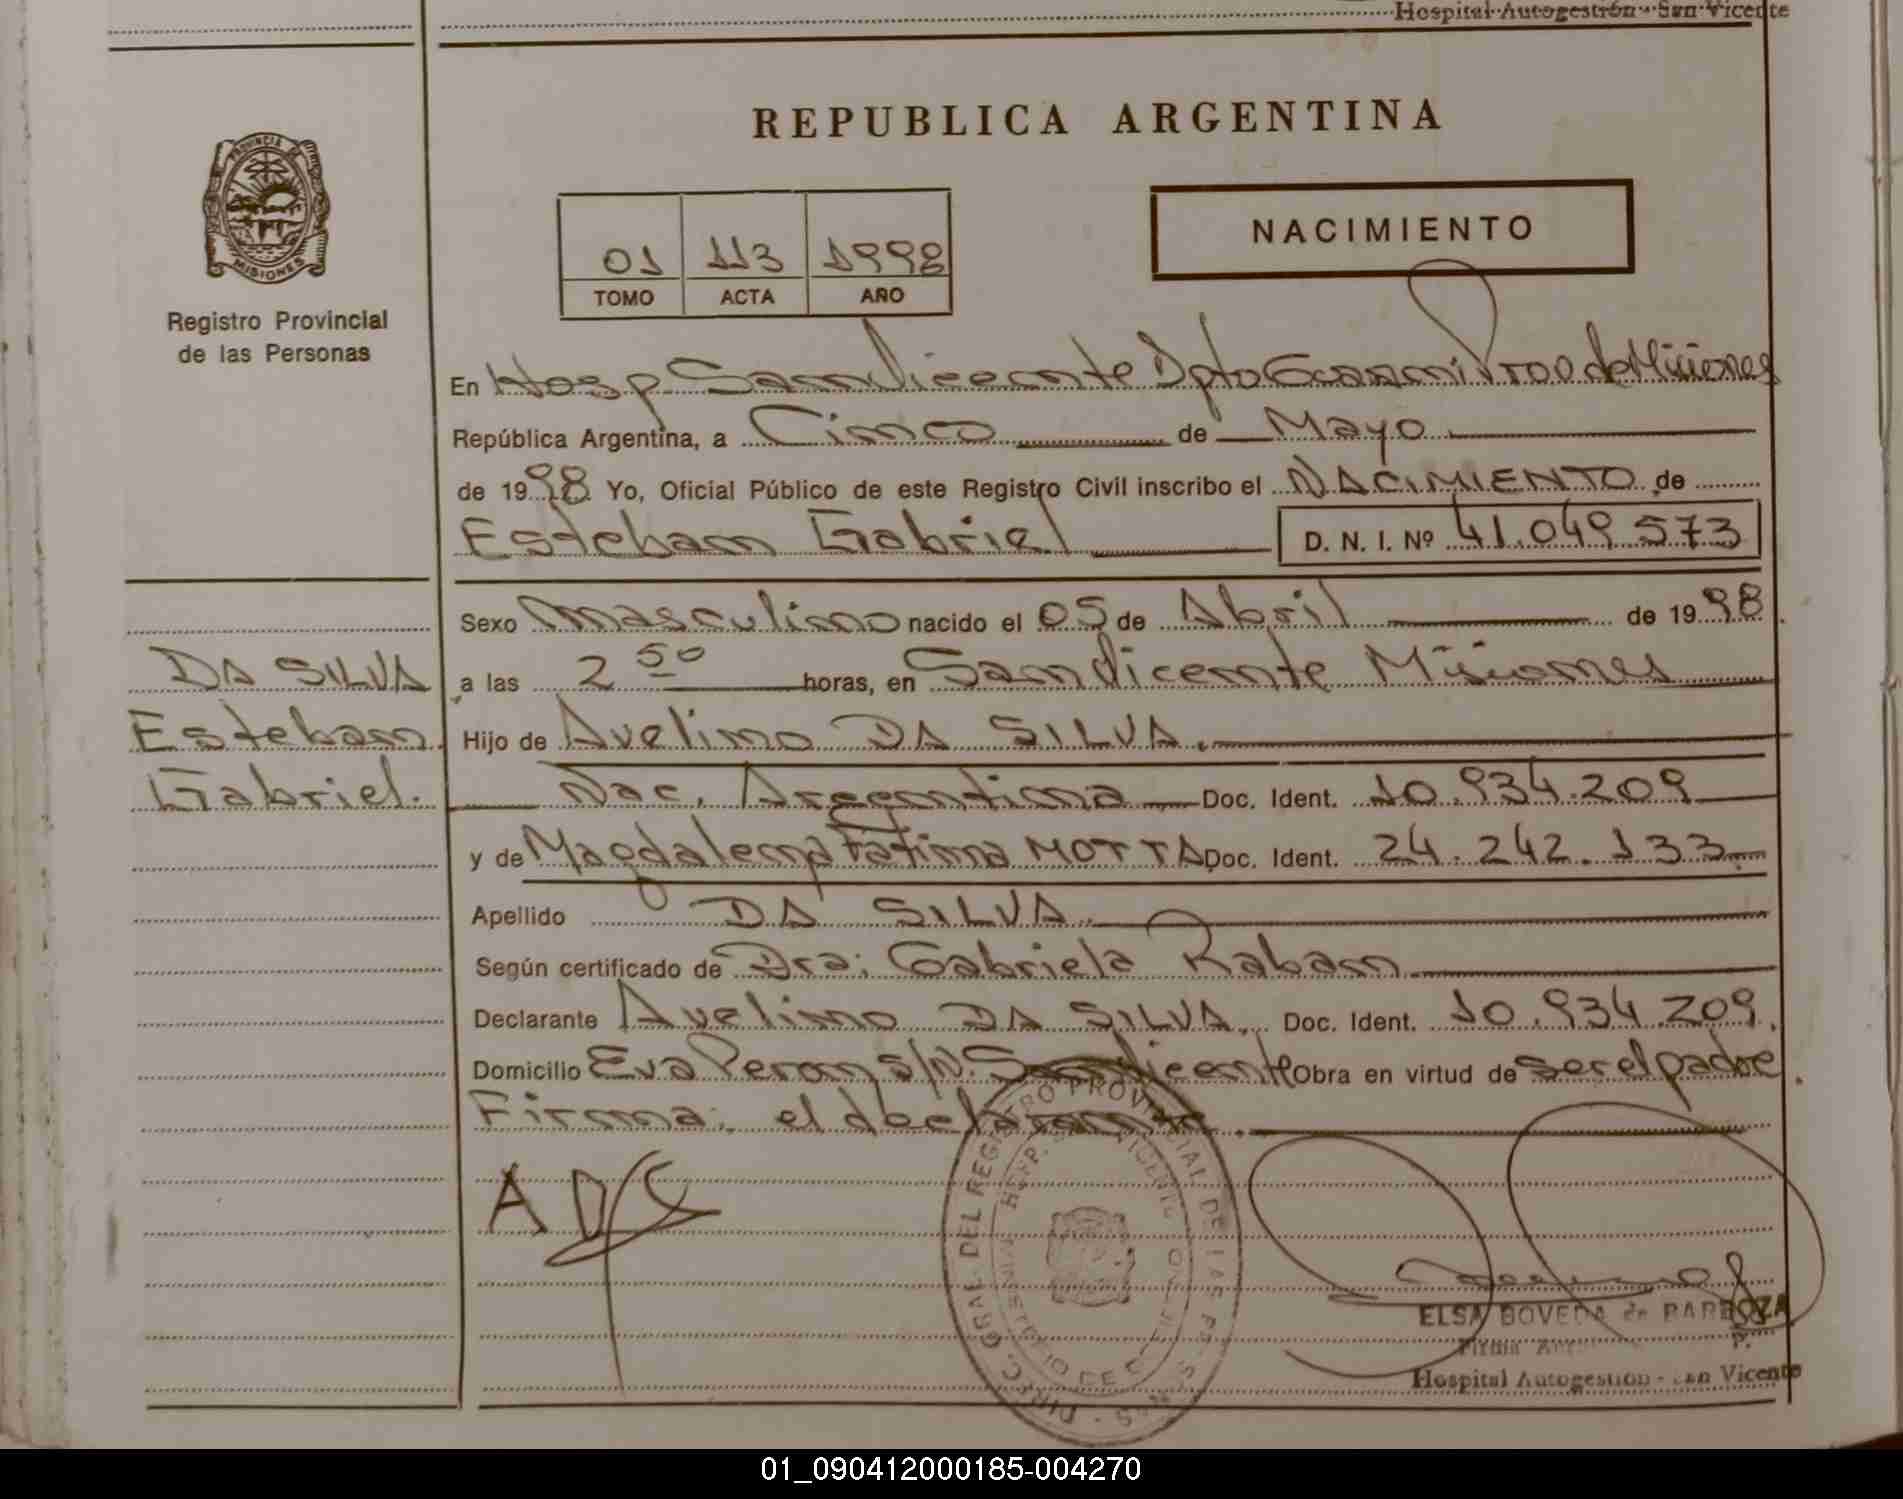 Hospital Autogestión - San Vicente
REPUBLICA ARGENTINA
PROVINCIA DE
MISIONES
Registro Provincial
de las Personas
01 113 1998
TOMO ACTA AÑO
NACIMIENTO
En Hosp San Vicente Dpto Guarani Prov de Misiones
República Argentina, a Cinco de Mayo
de 1998 Yo, Oficial Público de este Registro Civil inscribo el NACIMIENTO de
Esteban Gabriel D. N. I. Nº 41.049.573
Sexo Masculino nacido el 05 de Abril de 1998
DA SILVA
Esteban
Gabriel.
a las 2 50 horas, en San Vicente Misiones
Hijo de Avelino DA SILVA.
Nac. Argentina Doc. Ident. 10.934.209
y de Magdalena Fatima MOTTA Doc. Ident. 24.242.133
Apellido DA SILVA.
Según certificado de Dra: Gabriela Raban
Declarante Avelino DA SILVA. Doc. Ident. 10.934.209.
Domicilio Eva Peron s/N. San Vicente Obra en virtud de ser el padre.
Firma: el declarante.
ADS
DIREC. GRAL. DEL REGISTRO PROVINCIAL DE LAS PERSONAS
ELSA BOVEDA de BARBOZA
Hospital Autogestión - San Vicente
01_090412000185-004270